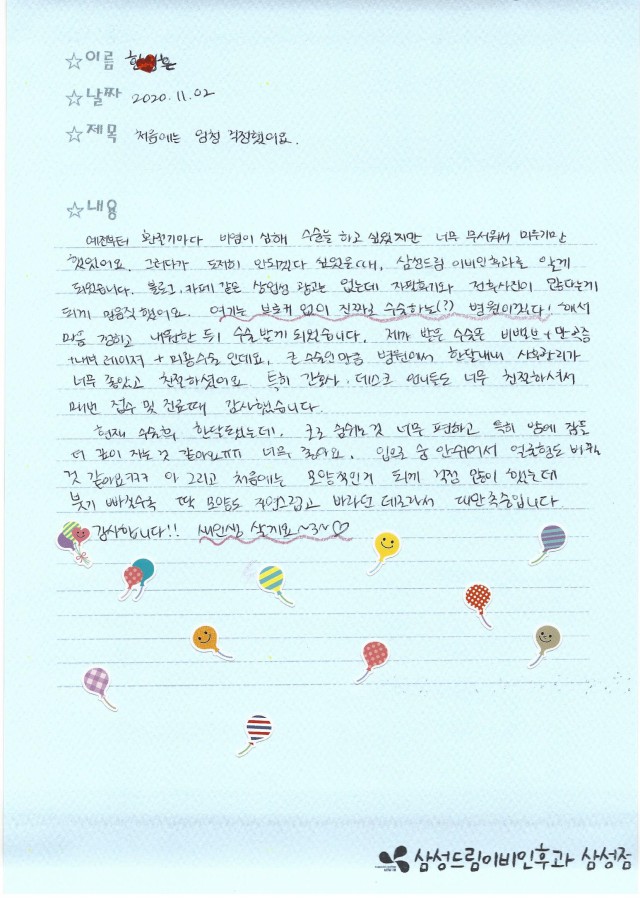 ☆이름
☆날짜 2020.11.02
☆제목 처음에는 엄청 걱정했어요.
☆내용
예전부터 환절기마다 비염이 심해 수술을 하고 싶었지만 너무 무서워서 미루기만
했었어요. 그러다가 도저히 안되겠다 싶었을때, 삼성드림이비인후과를 알게
되었습니다. 블로그, 카페 같은 상업성 광고는 없는데 자필후기와 전후사진이 많다는게
되게 믿음직했어요. 여기는 브로커 없이 진짜로 수술하는(?) 병원이겠다! 해서
마음 정하고 내원한 뒤 수술받게 되었습니다. 제가 받은 수술은 비밸브+만곡증
+내벽레이저 + 미용수술 인데요, 큰 수술인만큼 병원에서 한달내내 사후관리가
너무 좋았고 친절하셨어요. 특히 간호사, 데스크 언니들도 너무 친절하셔서
매번 접수 및 진료때 감사했습니다.
현재 수술후 한달됐는데, 코로 숨쉬는것 너무 편하고 특히 밤에 잠을
더 깊이 자는것 같아요ㅠㅠ 너무 좋아요. 입으로 숨 안쉬어서 얼굴형도 바뀐
것 같아요ㅋㅋㅋ 아 그리고 처음에는 모양적인게 되게 걱정 많이 했는데
붓기 빠질수록 딱 모양도 자연스럽고 바라던 대로라서 대만족중입니다.
감사합니다!! 새인생 살게요 ~3~♡
삼성드림이비인후과 삼성점